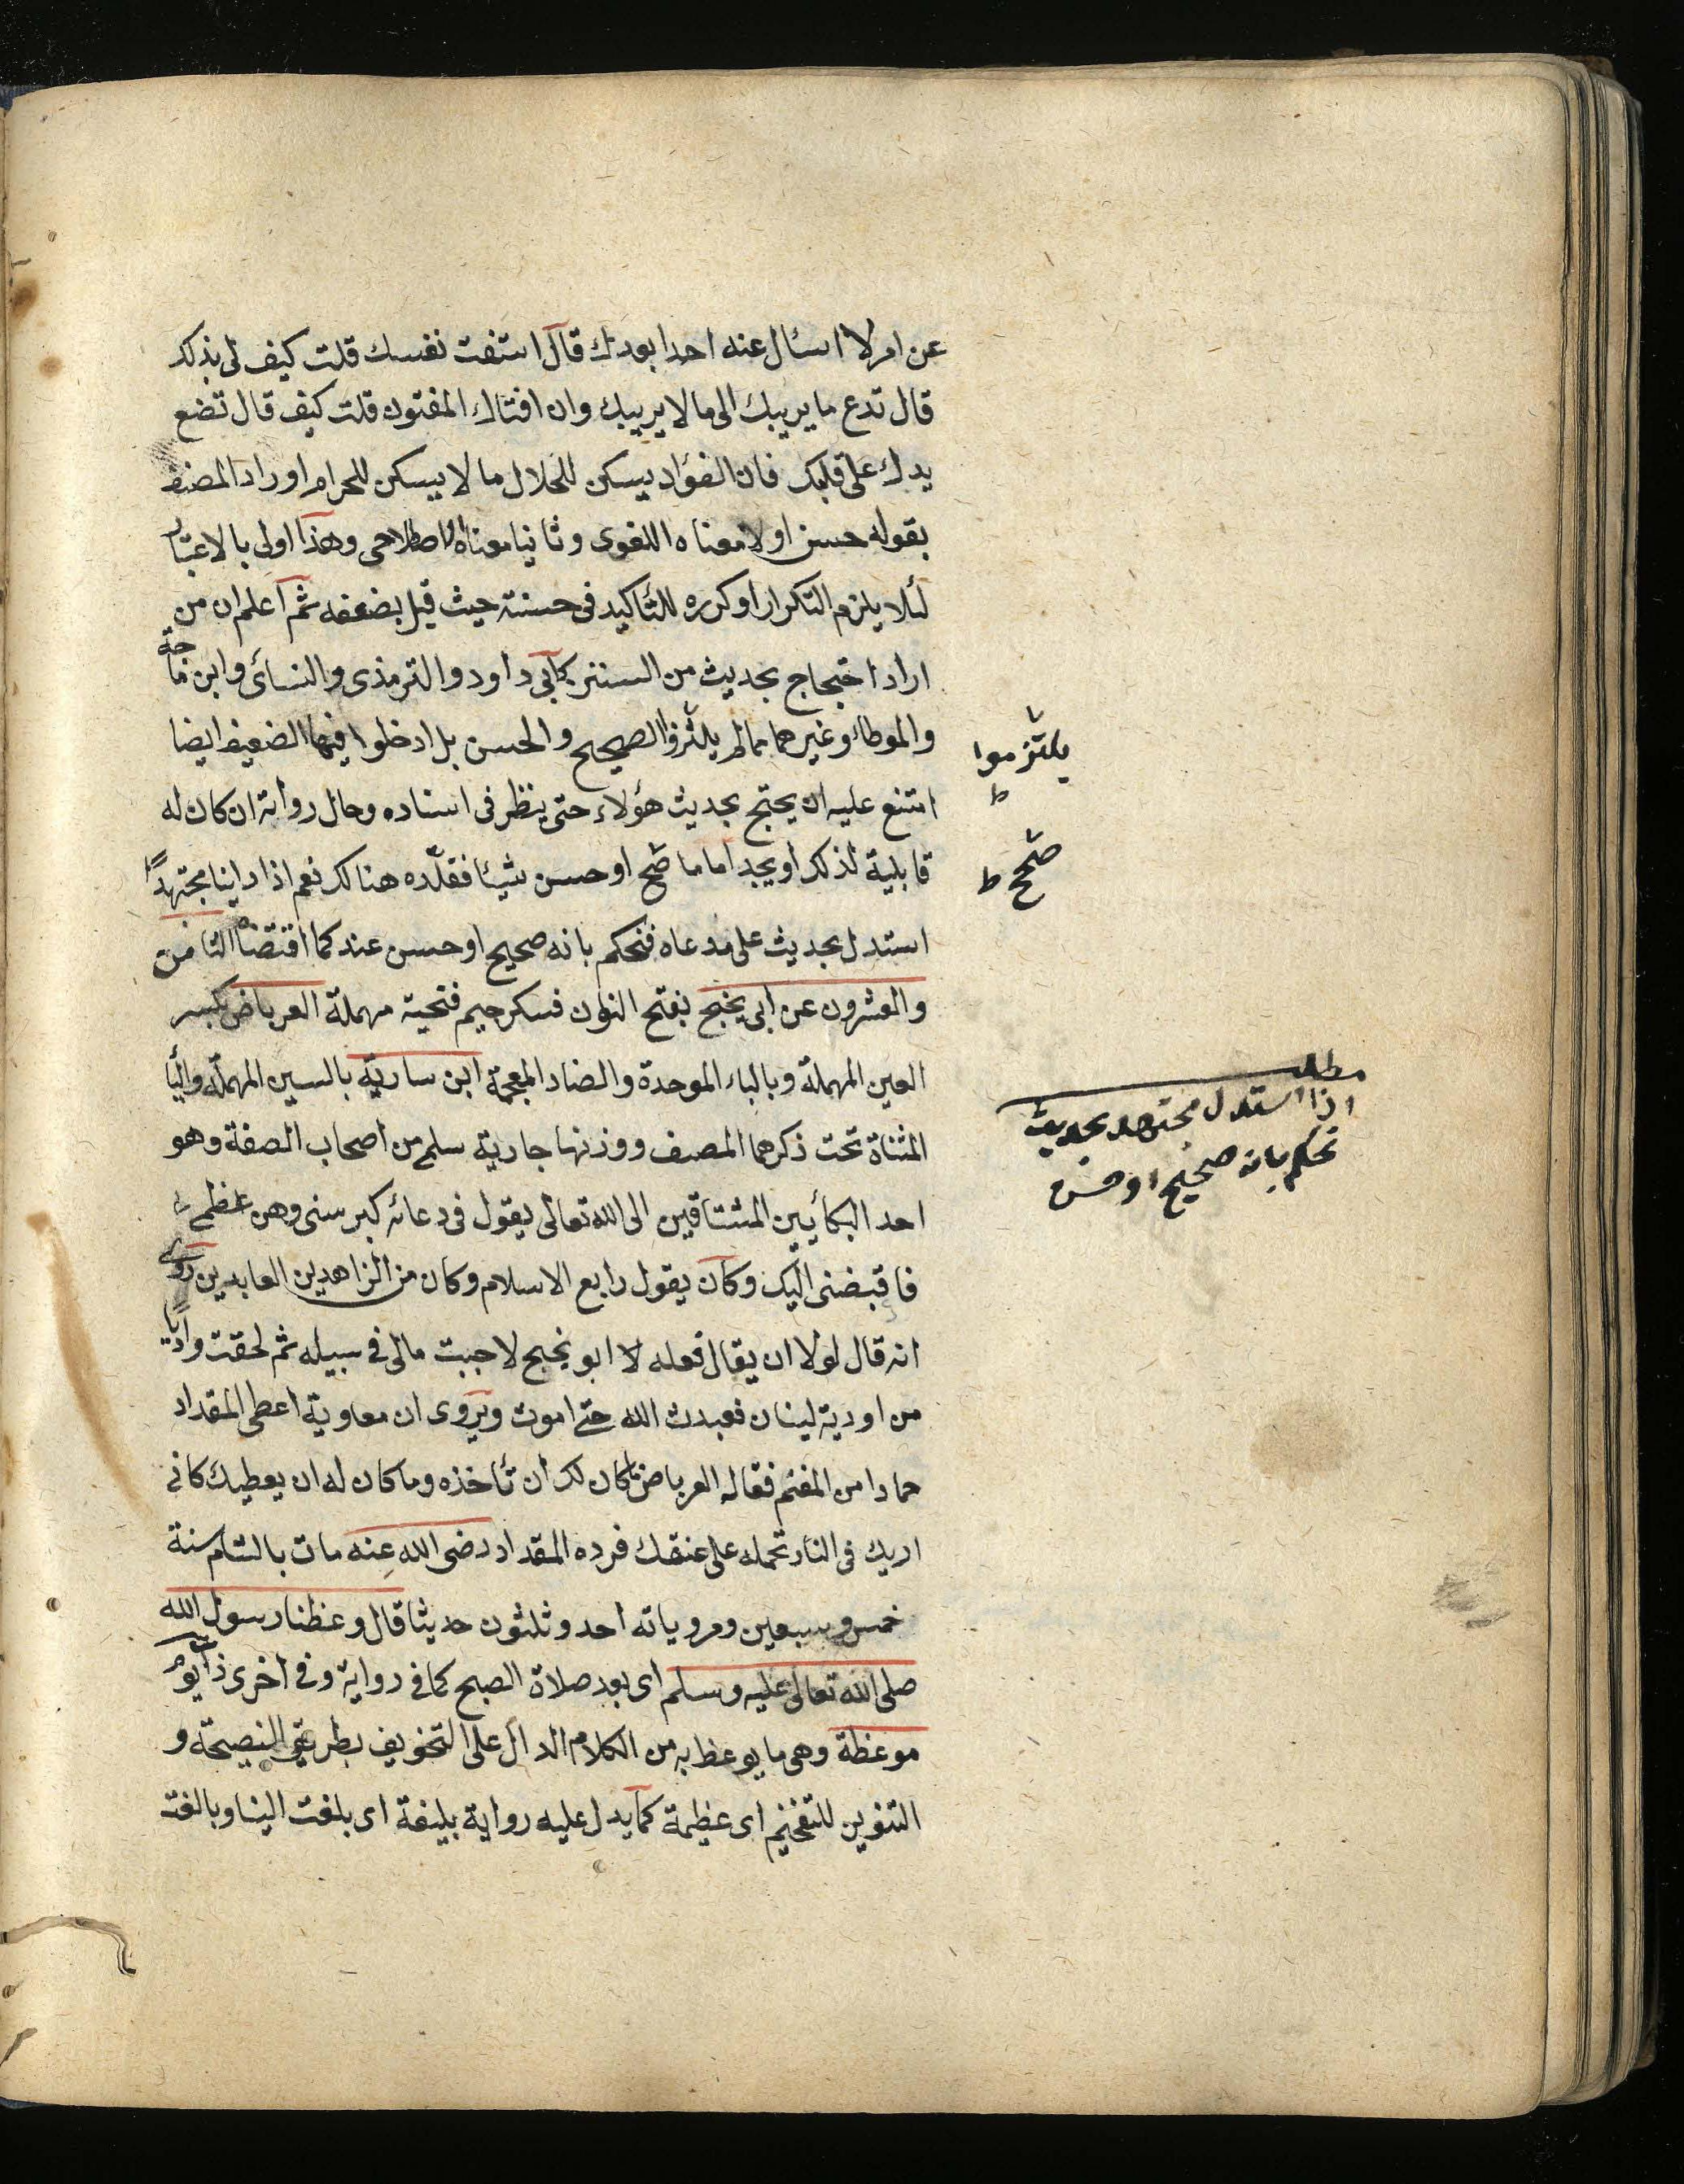 عن امر لا اسئال عنه احدا بعدك قال استفت نفسك قلت كيف لى بذلك
قال تدع ما يريبك الى ما لا يريبك وان افتاك المفتون قلت كيف قال تضع
يدك على قلبك فان الفؤاد يسكن للحلال ما لا يسكن للحرام او راد المصنف
بقوله حسن اولا معناه اللغوى وثانيا معناه الاصطلاحى وهذا اولى بالاعتبار
لئلا يلزم التكرار او كرره للتأكيد فى حسنته حيث قيل بضعفه ثم اعلم ان من
اراد احتجاج بحديث من السنن كابى داود والترمذى والنسائى وابن ماجة
والموطائ وغيرهما مما لم يلتزموا الصحيح والحسن بل ادخلوا فيها الضعيف ايضا
امتنع عليه ان يحتج بحديث هؤلاء حتى ينظر فى اسناده وحال رواته ان كان له
قابلية لذلك او يجد اماما صحح او حسن شيئا فقلّده هنالك نعم اذا راينا مجتهدًا
استدل بحديث على مدعاه فنحكم بانه صحيح او حسن عند كما اقتضاه الثامن
والعشرون عن ابى نجيح بفتح النون فسكر جيم فتحية مهملة العرباض بكسر
العين المهملة وبالباء الموحدة والضاد المعجمة ابن سارية بالسين المهملة واليأ
المثناة تحت ذكرهما المصنف ووزنها جارية سلم من اصحاب الصفة وهو
احد البكأيين المشتاقين الى الله تعالى يقول فى دعائه كبر سنى وهن عظمى
فاقبضنى اليك وكان يقول رابع الاسلام وكان من الزاهدين العابدين روى
انه قال لولا ان يقال فعله لا ابو نجيح لاجبت مالى فى سبيله ثم لحقت واديًا
من اودية لبنان فعبدت الله حتى اموت ويروى ان معاوية اعطى المقداد
حمارا من المغنم فقال له العرباض ما كان لك ان تأخذه وما كان له ان يعطيك كانى
اريك فى النار تحمله على عنقك فرده المقداد رضى الله عنه مات بالشام سنة
خمس وسبعين ومروياته احد وثلثون حديثا قال وعظنا رسول الله
صلى الله تعالى عليه وسلم اى بعد صلاة الصبح كما فى رواية وفى اخرى ذات يوم
موعظة وهى ما يوعظ به من الكلام الدال على التخويف بطريق النصيحة و
التنوين للتفخيم اى عظيمة كما يدل عليه رواية بليغة اى بلغت الينا وبالغت
يلتزموا
ط
صحح ط
مطلب
اذا استدل مجتهد بحديث
نحكم بانه صحيح او حسن